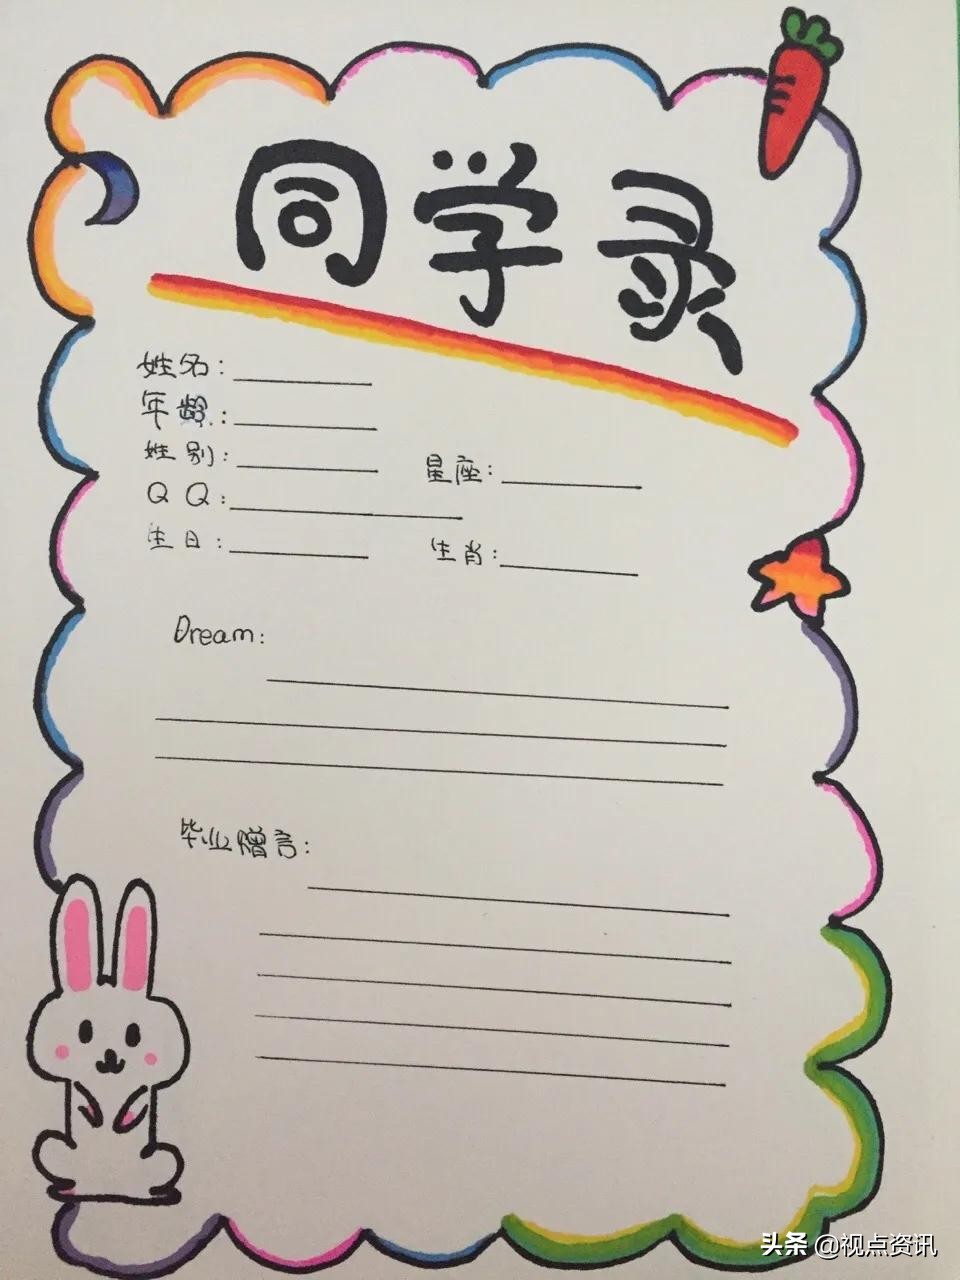 同学录
姓名:
年龄:
姓别:
星座:
QQ:
生日:
生肖:
Dream:
毕业赠言:
头条 @视点资讯